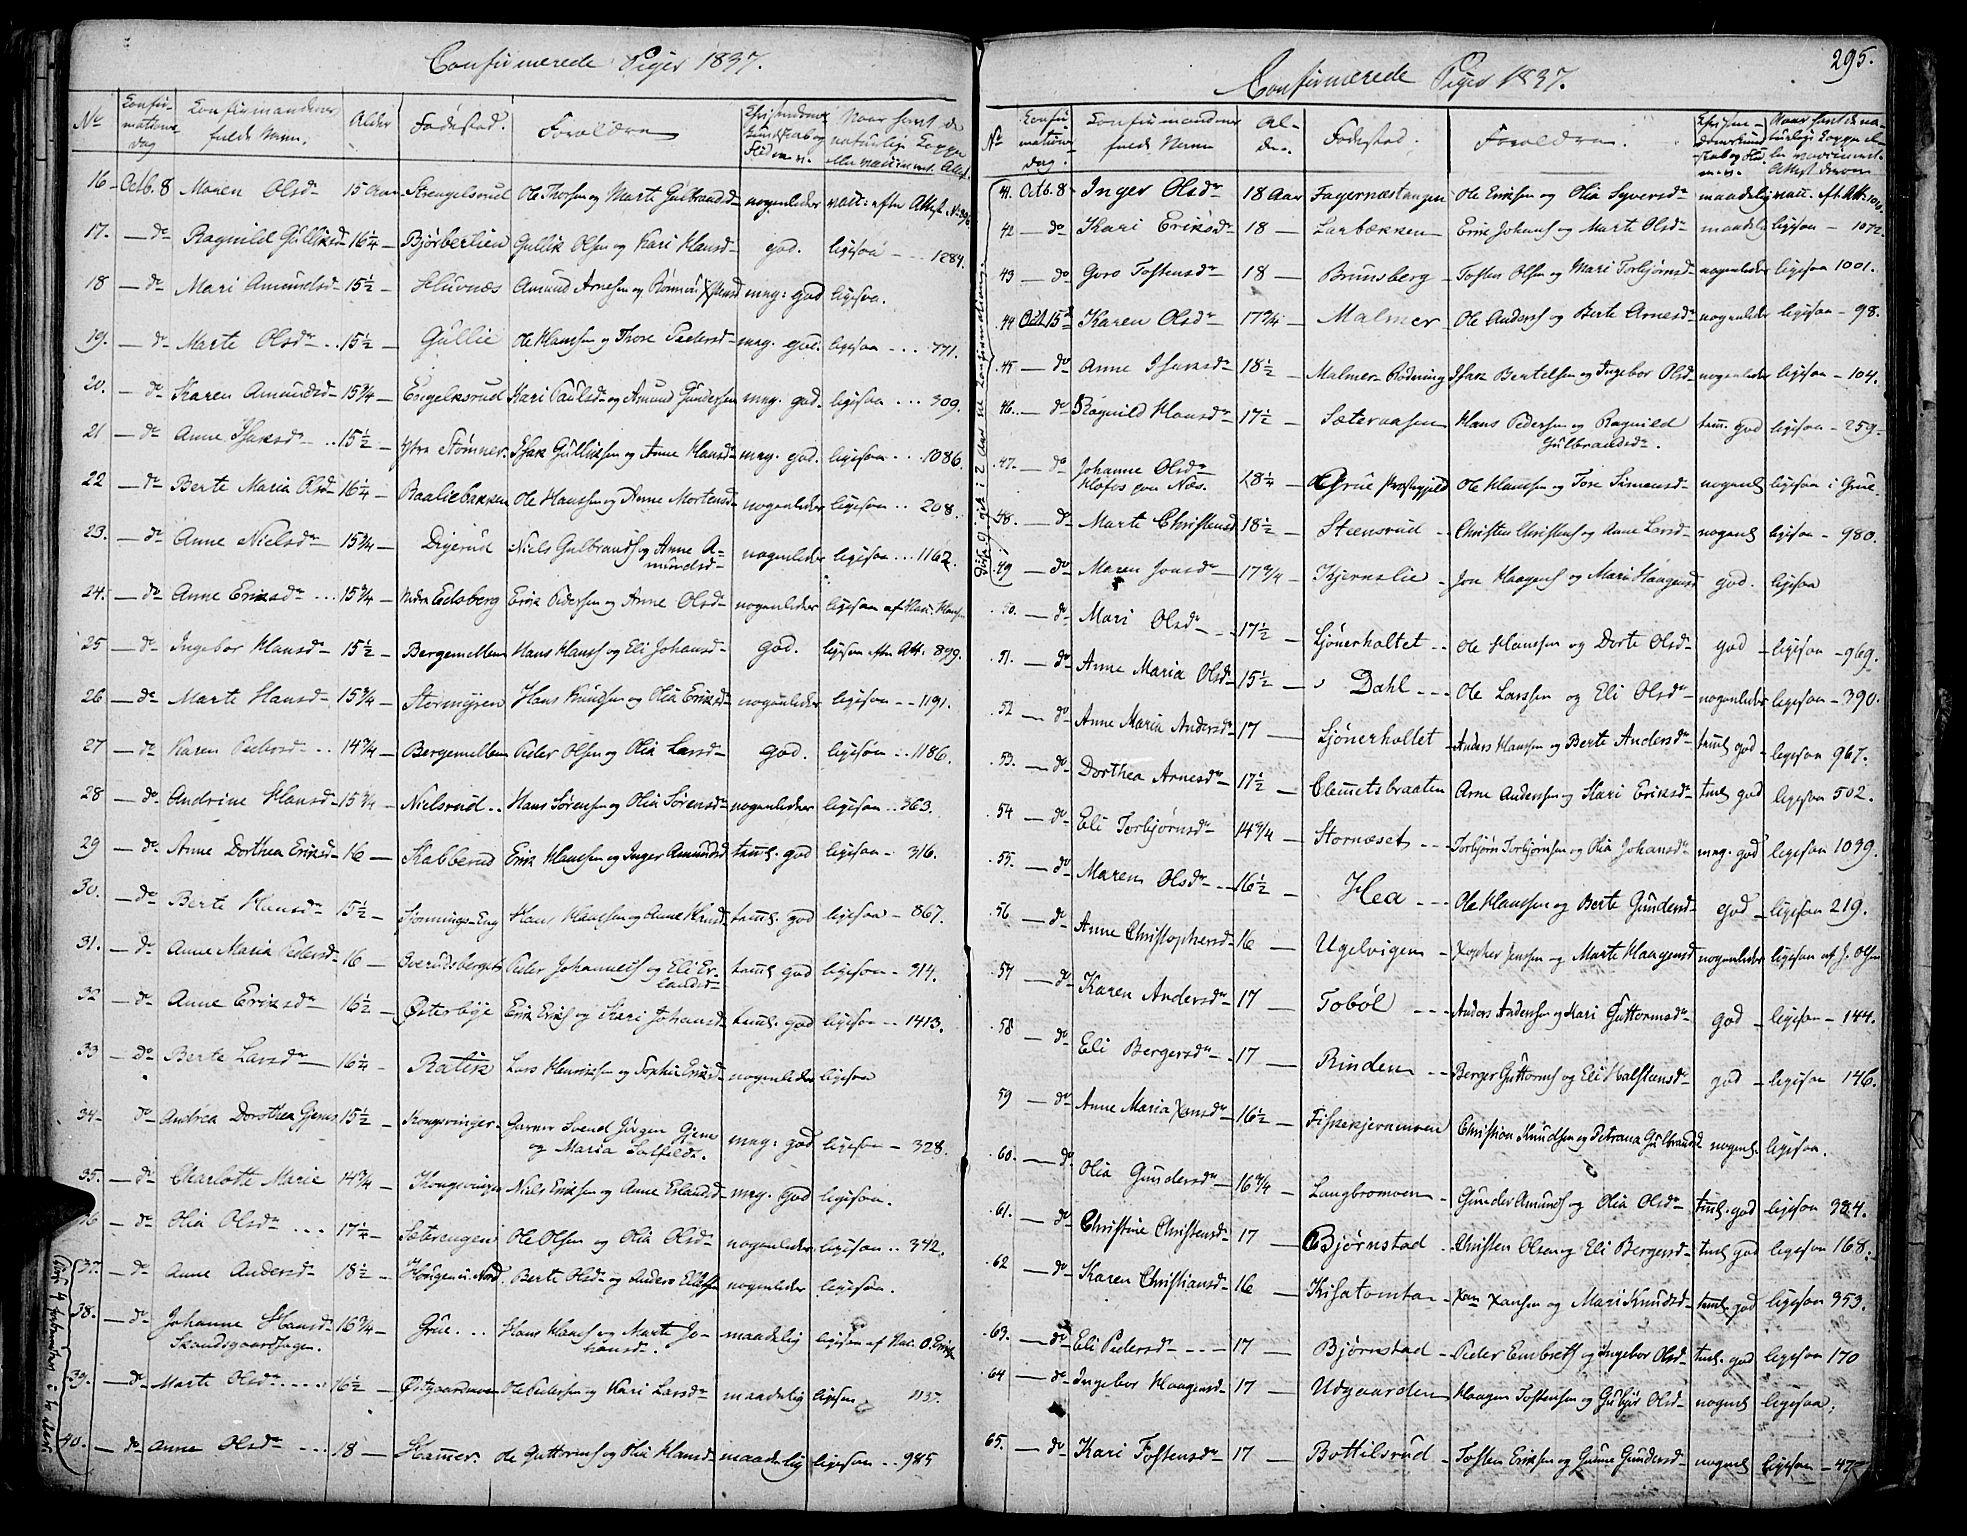 Confirmerede Piger 1837.
No Confirmations dag Confirmandens fulde Navn. Alder Fødested. Forældre
16 - Octb. 8 Maren Olsdr 15 Aar Stengelsrud Ole Thorsen og Marte Gulbrandsd nogenleder vacc: efter Attest No
17. - do Ragnild Gulliksd 16 1/4 - Bjørberlien Gullik Olsen og Kari Hansd god. ligesaa - - 1284.
18 - do Mari Amundsd 15 1/2 - Sluvnæs Amund Arnesen og meg: god ligesaa.
19. - do Marte Olsdr - - 15 1/2 - Gullie Ole Hanssen og Thore Pedersd meg. god. ligesaa - - - 771.
20. - do Karen Amundsd 15 3/4 - Engelksrud Kari Paulsdr og Amund Gundersen meg. god. ligesaa - - - 309.
21 - do Anne Isaksdr - - 15 1/2 - Ytre Stømner Isak Gulliksen og Anne Hansd meg. god. ligesaa - - - 1086.
22 - do Berte Maria Olsd 16 1/4 - Raaliebakken Ole Hanssen og Anne Mortensd nogenleder ligesaa - - 208.
23. - do Anne Nielsdr 15 3/4 - Digerud Niels Gulbrands og Anne Amundsd nogenleder ligesaa - - - 1162.
24. - do Anne Eriksdr - - - 15 3/4 - Edsberg Erik Pedersen og Anne Olsd nogenleder ligesaa af
25 - do Ingebor Hansd 15 1/2 - Bergemellem Hans Hans og Eli Johansd god. ligesaa efter Att. 899.
26 - do Marte Hansd 15 3/4 - Stormyren Hans Knudsen og Olia Eriksd nogenleder ligesaa - - 1191.
27 - do Karen Pedersd - - 14 3/4 - Bergemellem Peder Olsen og Olia Larsd god. ligesaa - - 1186.
28 - do Andrine Hansd 15 3/4 - Nielsrud - - Hans Sørensen og Olia Sørensd nogenleder ligesaa - - 363.
29 - do Anne Dorthea Eriksd 16 - Skabberud Erik Hanssen og Inger Amundsd teml. god ligesaa - 316.
30. - do Berte Hansdr 15 1/2 - Hans Hanssen og Anne Knudsd teml. god ligesaa - 867.
31. - do Anne Maria Pedersd 16 - Peder Johannes og Eli Erlandsd teml god ligesaa - 914.
32 - do Anne Eriksdr 16 1/2 - Østerbye Erik Eriks og Kari Johansd teml. god ligesaa - - 1413.
33 - do Berte Larsdr 16 1/4 - Ratik Lars Henriksen og Sophie Eriksd nogenleder ligesaa
34 - do Andrea Dorothea Gjems 15 1/2 - Kongsvinger - Garver Svend Jørgen Gjem og Maria meg: god ligesaa - 328.
35. - do Charlotte Marie 14 3/4 - Kongsvinger Niels Eriksen og Anne Erlandsd meg. god ligesaa.
36 - do Olia Olsdr - - - 17 1/4 - Sæterengen Ole Olsen og Olia Olsd nogenleder ligesaa - - 342.
37. - do Anne Andersd 18 1/2 - Berte Olsdr og Anders nogenleder ligesaa.
38. - do Johanne Hansd 16 3/4 - Grue - - Hans Hans og Marte Johansd. maadelig ligesaa af
39. - do Marte Olsdr - - - 16 1/2 - Ole Pedersen og Kari Larsdr maadelig ligesaa. 1137.
40. - do Anne Olsdr - - - 18 - Hamer Ole Guttorms og Olia Hansd maadelig ligesaa - - 985
Confirmerede Piger 1837.
295.
No Confirmations dag. Confirmandens fulde Navn Alder. Fødested. Forældre.
Disse 9 gik i 2 Aar til Confirmation
41. Octb. 8 - Inger Olsdr 18 Aar Fagernæstangen Ole Eriksen og Olia Syversdr maadelig vacc. eft. Att.
42 - do Kari Eriksdr 18 - Larbækken Erik Johans og Marte Olsdr maadelig ligesaa - 1072.
43 - do Goro Tostensdr 18 - Brunsberg - Tosten Olsen og Mari Torbjørnsd nogenleder ligesaa 1001.
44 Octb. 15d Karen Olsdr 17 3/4 - Malmer Ole Anders og Berte Arnesdr nogenleder ligesaa - 98.
45 - do Anne Isaksdr 18 1/2 - Malmer-Rødning Isak Bertelsen og Ingebor Olsd nogenleder ligesaa - 104.
46. - do Ragnild Hansdr 17 1/2 - Sæteraasen Hans Pedersen og Ragnild Gulbrandsdr. teml. god ligesaa - 259
47. - do Johanne Olsdr paa Næs. 18 1/4 - Grue Præstegjeld Ole Hanssen og Tore Simensd nogenl ligesaa i Grue.
48. - do Marte Christensd 18 1/2 - Steensrud - Christen Christens og Anne Larsd nogenl ligesaa - 980.
49 - do Maren Jonsdr 17 3/4 - Kjernslie - Jon Haagens og Mari Haagensd god. ligesaa
50. - do Mari Olsdr - - 17 1/2 - Sjønerholtet - Ole Hanssen og Dorte Olsdr god - ligesaa - 969.
51. - do Anne Maria Olsd 15 1/2 - Dahl - - - Ole Larssen og Eli Olsdr nogenleder ligesaa - 390.
52 - do Anne Maria Andersd 17 - Sjønerholtet - Anders Hanssen og Berte Andersdr teml god - ligesaa 967.
53. - do Dorthea Arnesdr 17 1/2 - Clemetsbraaten Arne Anderssen og Kari Eriksd teml god ligesaa 502.
54 - do Eli Torbjørnsdr 14 3/4 - Stornæset - - - Torbjørn Torbjørnsen og Olia Johansdr meg. god ligesaa 1099.
55. - do Maren Olsdr - - 16 1/2 - Hea - - - Ole Hanssen og Berte Gundersd god - ligesaa 219.
56 - do Anne Christophersd 16 - Ugelvigen - Xopher Jenssen og Marte Haagensd nogenleder ligesaa af J. Olsen
57 - do Karen Andersdr 17 - Tobøl - - - Anders Anderssen og Kari Guttormsdr god - ligesaa - 144.
58 - do Eli Bergersdr - 17 - Rinden - - Berger Guttorms og Eli Halstensdr god - ligesaa 146.
59 - do Anne Maria Xansdr 16 1/2 - Fiskekjernmoen Christian Knudsen og Petrana Gulbrandsd nogenl. ligesaa.
60. - do Olia Gundersdr 16 3/4 - Langbromoen - Gunder Amunds og Olia Olsdr teml. god ligesaa 324.
61. - do Christine Christensd 17 - Bjørnstad - Christen Olsen og Eli Bergersd teml god ligesaa 168.
62 - do Karen Christiansd 16 - Kisatomten - Xan Xansen og Mari Knudsd teml. god ligesaa 353.
63. - do Eli Pedersdr - - - 17 - Bjørnstad - Peder Embrets og Ingebor Olsd teml. god ligesaa 170
64 - do Ingebor Haagensd 17 - Udgaarden Haagen Tostensen og Gubjør Olsd nogenl ligesaa;
65. - do Kari Tostensdr 17 - Bottilsrud - Tosten Eriksen og Gunne Gundersd nogenl ligesaa - 47